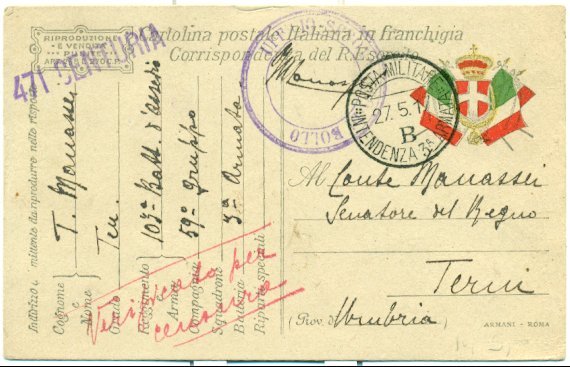 RIPRODUZIONE
E VENDITA
PUNITE
471 CENTURIA
Cartolina postale Italiana in franchigia
Corrispondenza del R. Esercito
Manassei
BOLLO
POSTA MILITARE
27.5.1
B
INTENDENZA 3ª ARMATA
Al Conte Manassei
Senatore del Regno
Terni
(Prov. di Umbria
ARMANI - ROMA
Indirizzo del mittente da riprodurre nella risposta
Cognome T. Manassei
Nome
Grado Ten.
Reggimento 103ª Batt. d'assedio
Arma
Compagnia 59º Gruppo
Squadrone
Batteria 3ª Armata
Riparti speciali
Verificato per
censura